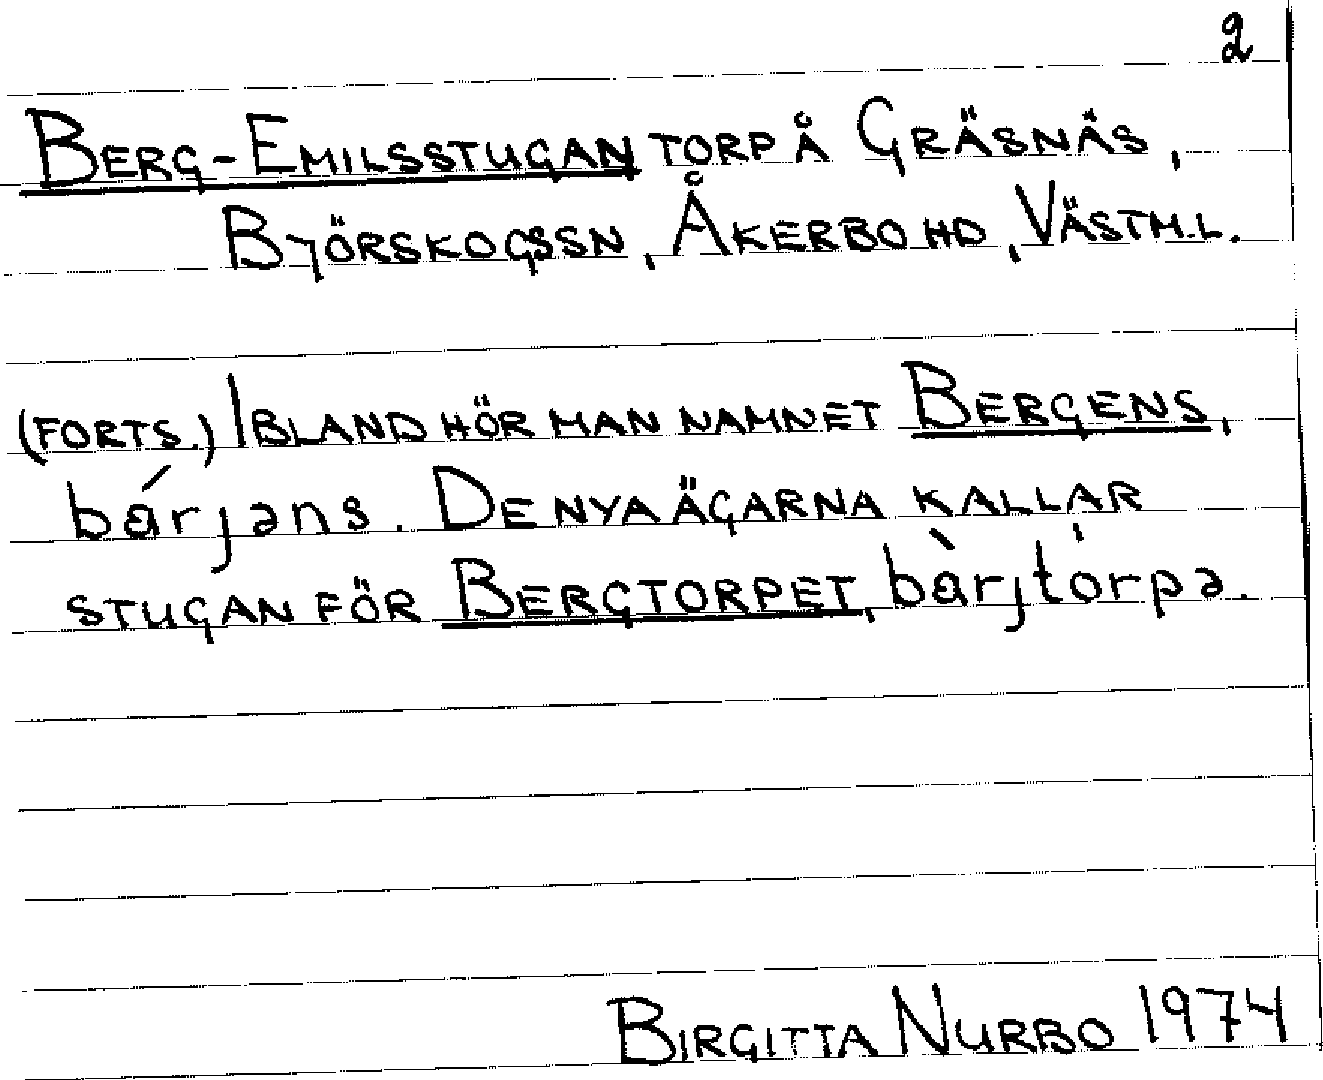 2
BERG-EMILSSTUGAN TORP Å GRÄSNÄS,
BJÖRSKOGSSN, ÅKERBO HD, VÄSTM.L.
(FORTS.) IBLAND HÖR MAN NAMNET BERGENS,
bárjəns. DE NYA ÄGARNA KALLAR
STUGAN FÖR BERGTORPET, bàrjtórpə.
BIRGITTA NURBO 1974